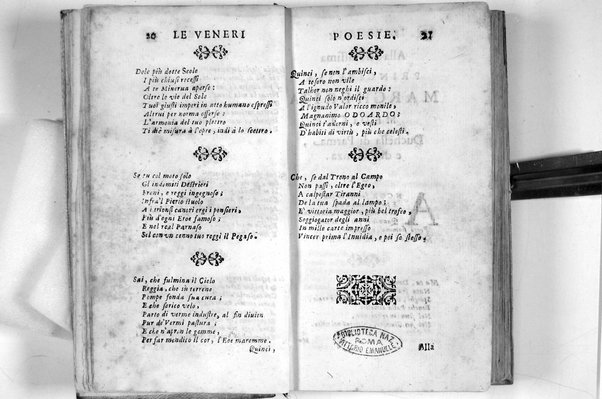 20 LE VENERI
Dole più dotte Scole
I più chiusi recessi
A te Minerua aperse:
Oltre le vie del Sole
Tuoi giusti imperi in atto humano espressi
Altrui per norma offerse:
L'armonia del tuo plettro
Ti diè misura à l'opre, indi à lo scettro.
Se tu col moto solo
Gl'indomiti Destrieri
Freni, e reggi ingegnoso;
Infra'l Pierio stuolo
A i trionfi canori ergi i pensieri,
Fin d'ogni Eroe famoso;
E nel real Parnaso
Sol com'un cenno tuo reggi il Pegaso.
Sai, che fulmina il Cielo
Reggia, che in terreno
Pompe fonda sua cura;
E che serico velo,
Parto di verme industre, al fin diuien
Pur di Vermi pastura;
E che n'apron le gemme,
Per far mendico il cor, l'Eoe maremme.
Quinci,
POESIE. 21
Quinci, se non l'ambisci,
A tesoro non vile
Talhor non neghi il guardo:
Quinci solo n'ordisci
A l'ignudo Valor ricco monile,
Magnanimo ODOARDO:
Quinci l'adorni, e vesti
D'habiti di virtù, più che celesti.
Che, se dal Treno al Campo
Non passi, oltre l'Egeo,
A calpestar Tiranni
De la tua spada al lampo;
E' vittoria maggior, più bel trofeo,
Soggiogator degli anni
In mille carte impresso
Vincer prima l'Inuidia, e poi se stesso.
BIBLIOTECA NAZ.
ROMA
VITTORIO EMANUELE
Alla